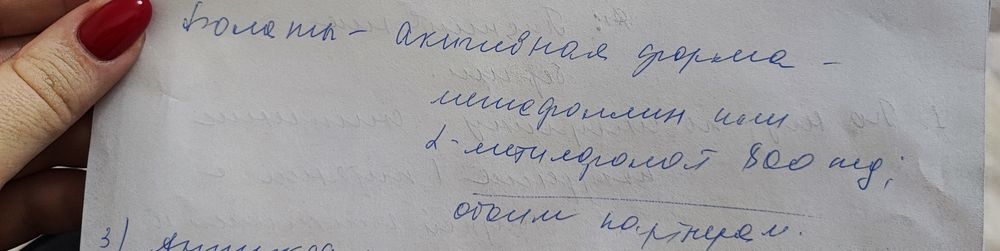 Фолаты - активная форма -
метафолин или
L-метилфолат 800 мкг;
обоим партнерам.
3)